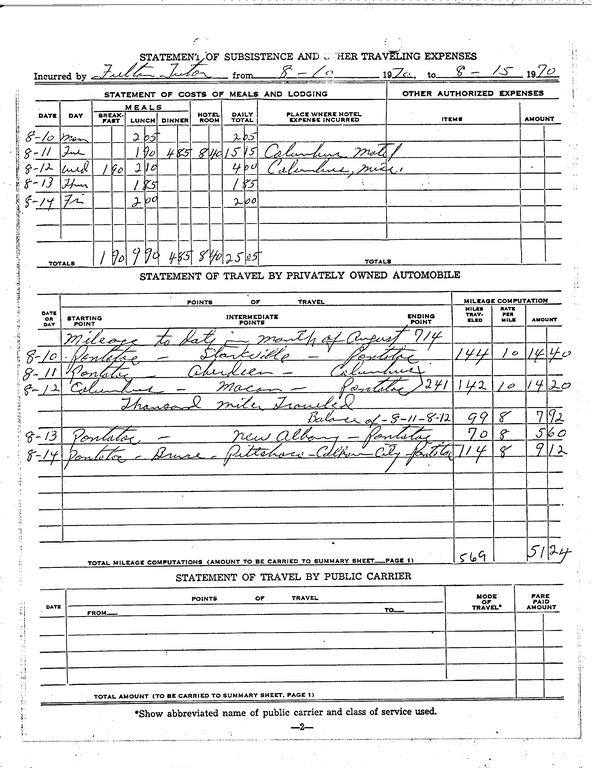 STATEMENT OF SUBSISTENCE AND OTHER TRAVELING EXPENSES
Incurred by Fulton Tutor from 8-10 1970 to 8-15 1970
STATEMENT OF COSTS OF MEALS AND LODGING OTHER AUTHORIZED EXPENSES
DATE DAY MEALS BREAK-FAST LUNCH DINNER HOTEL ROOM DAILY TOTAL PLACE WHERE HOTEL EXPENSE INCURRED ITEMS AMOUNT
8-10 Mon 2 05 2 05
8-11 Tue 1 90 4 85 8 40 15 15 Columbus Motel
8-12 Wed 1 90 2 10 4 00 Columbus, Miss.
8-13 Thur 1 85 1 85
8-14 Fri 2 00 2 00
TOTALS 1 90 9 90 4 85 8 40 25 05 TOTALS
STATEMENT OF TRAVEL BY PRIVATELY OWNED AUTOMOBILE
DATE OR DAY POINTS OF TRAVEL MILEAGE COMPUTATION
STARTING POINT INTERMEDIATE POINTS ENDING POINT MILES TRAV-ELED RATE PER MILE AMOUNT
Mileage to date in month of August 714
8-10 Pontotoc - Starkville - Pontotoc 144 10 14 40
8-11 Pontotoc - Aberdeen - Columbus
8-12 Columbus - Macon - Pontotoc) 241 142 10 14 20
Thousand miles Traveled
Balance of - 8-11-8-12 99 8 7 92
8-13 Pontotoc - New Albany - Pontotoc 70 8 5 60
8-14 Pontotoc - Bruce - Pittsboro - Calhoun City - Pontotoc 114 8 9 12
TOTAL MILEAGE COMPUTATIONS (AMOUNT TO BE CARRIED TO SUMMARY SHEET—PAGE 1) 569 51 24
STATEMENT OF TRAVEL BY PUBLIC CARRIER
DATE POINTS OF TRAVEL MODE OF TRAVEL* FARE PAID AMOUNT
FROM— TO—
TOTAL AMOUNT (TO BE CARRIED TO SUMMARY SHEET, PAGE 1)
*Show abbreviated name of public carrier and class of service used.
—2—